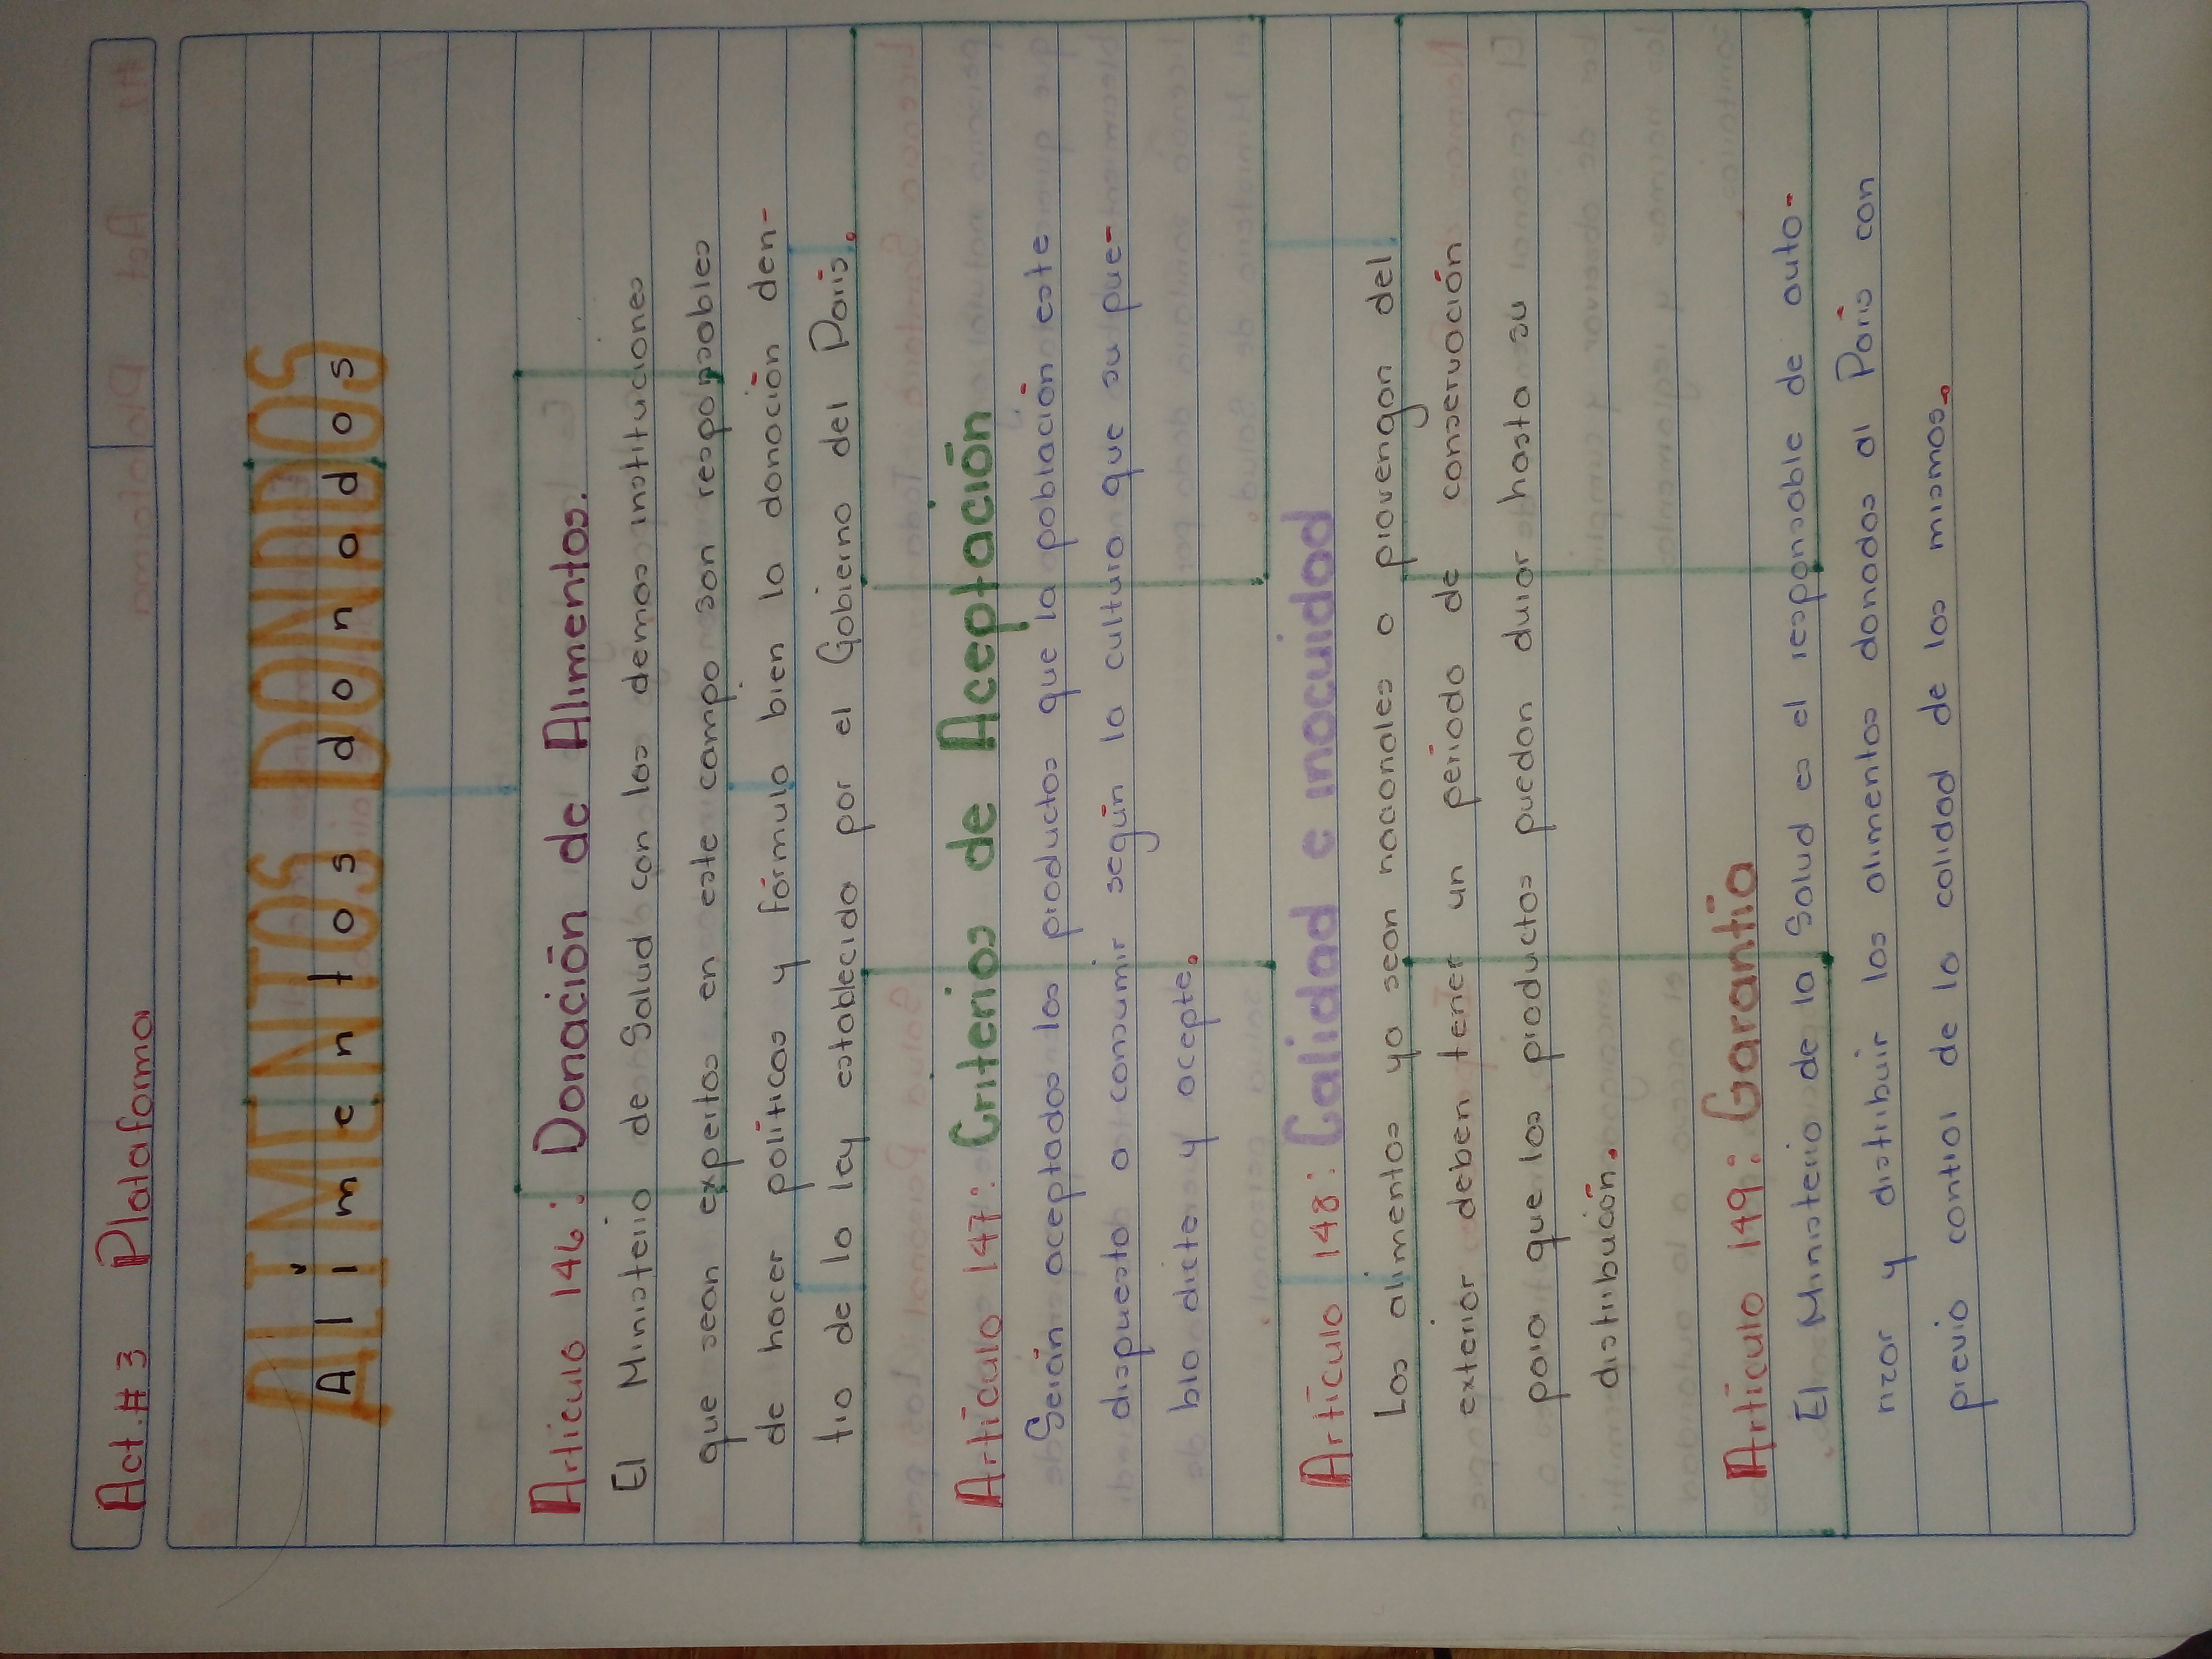 Act.# 3 Plataforma
ALIMENTOS DONADOS
Alimentos donados
Artículo 146: Donación de Alimentos.
El Ministerio de Salud con las demas instituciones
que sean expertos en este campo son responsables
de hacer políticas y fórmula bien la donación den-
tro de la ley establecida por el Gobierno del País.
Artículo 147: Criterios de Aceptación
Serán aceptados los productos que la población este
dispuesta a consumir según la cultura que su pue-
blo dicte y acepte.
Artículo 148: Calidad e inocuidad
Los alimentos ya sean nacionales o provengan del
exterior deben tener un período de conservación
para que los productos puedan durar hasta su
distribución.
Artículo 149: Garantía
El Ministerio de la Salud es el responsable de auto-
rizar y distribuir los alimentos donados al País con
previo control de la calidad de los mismos.